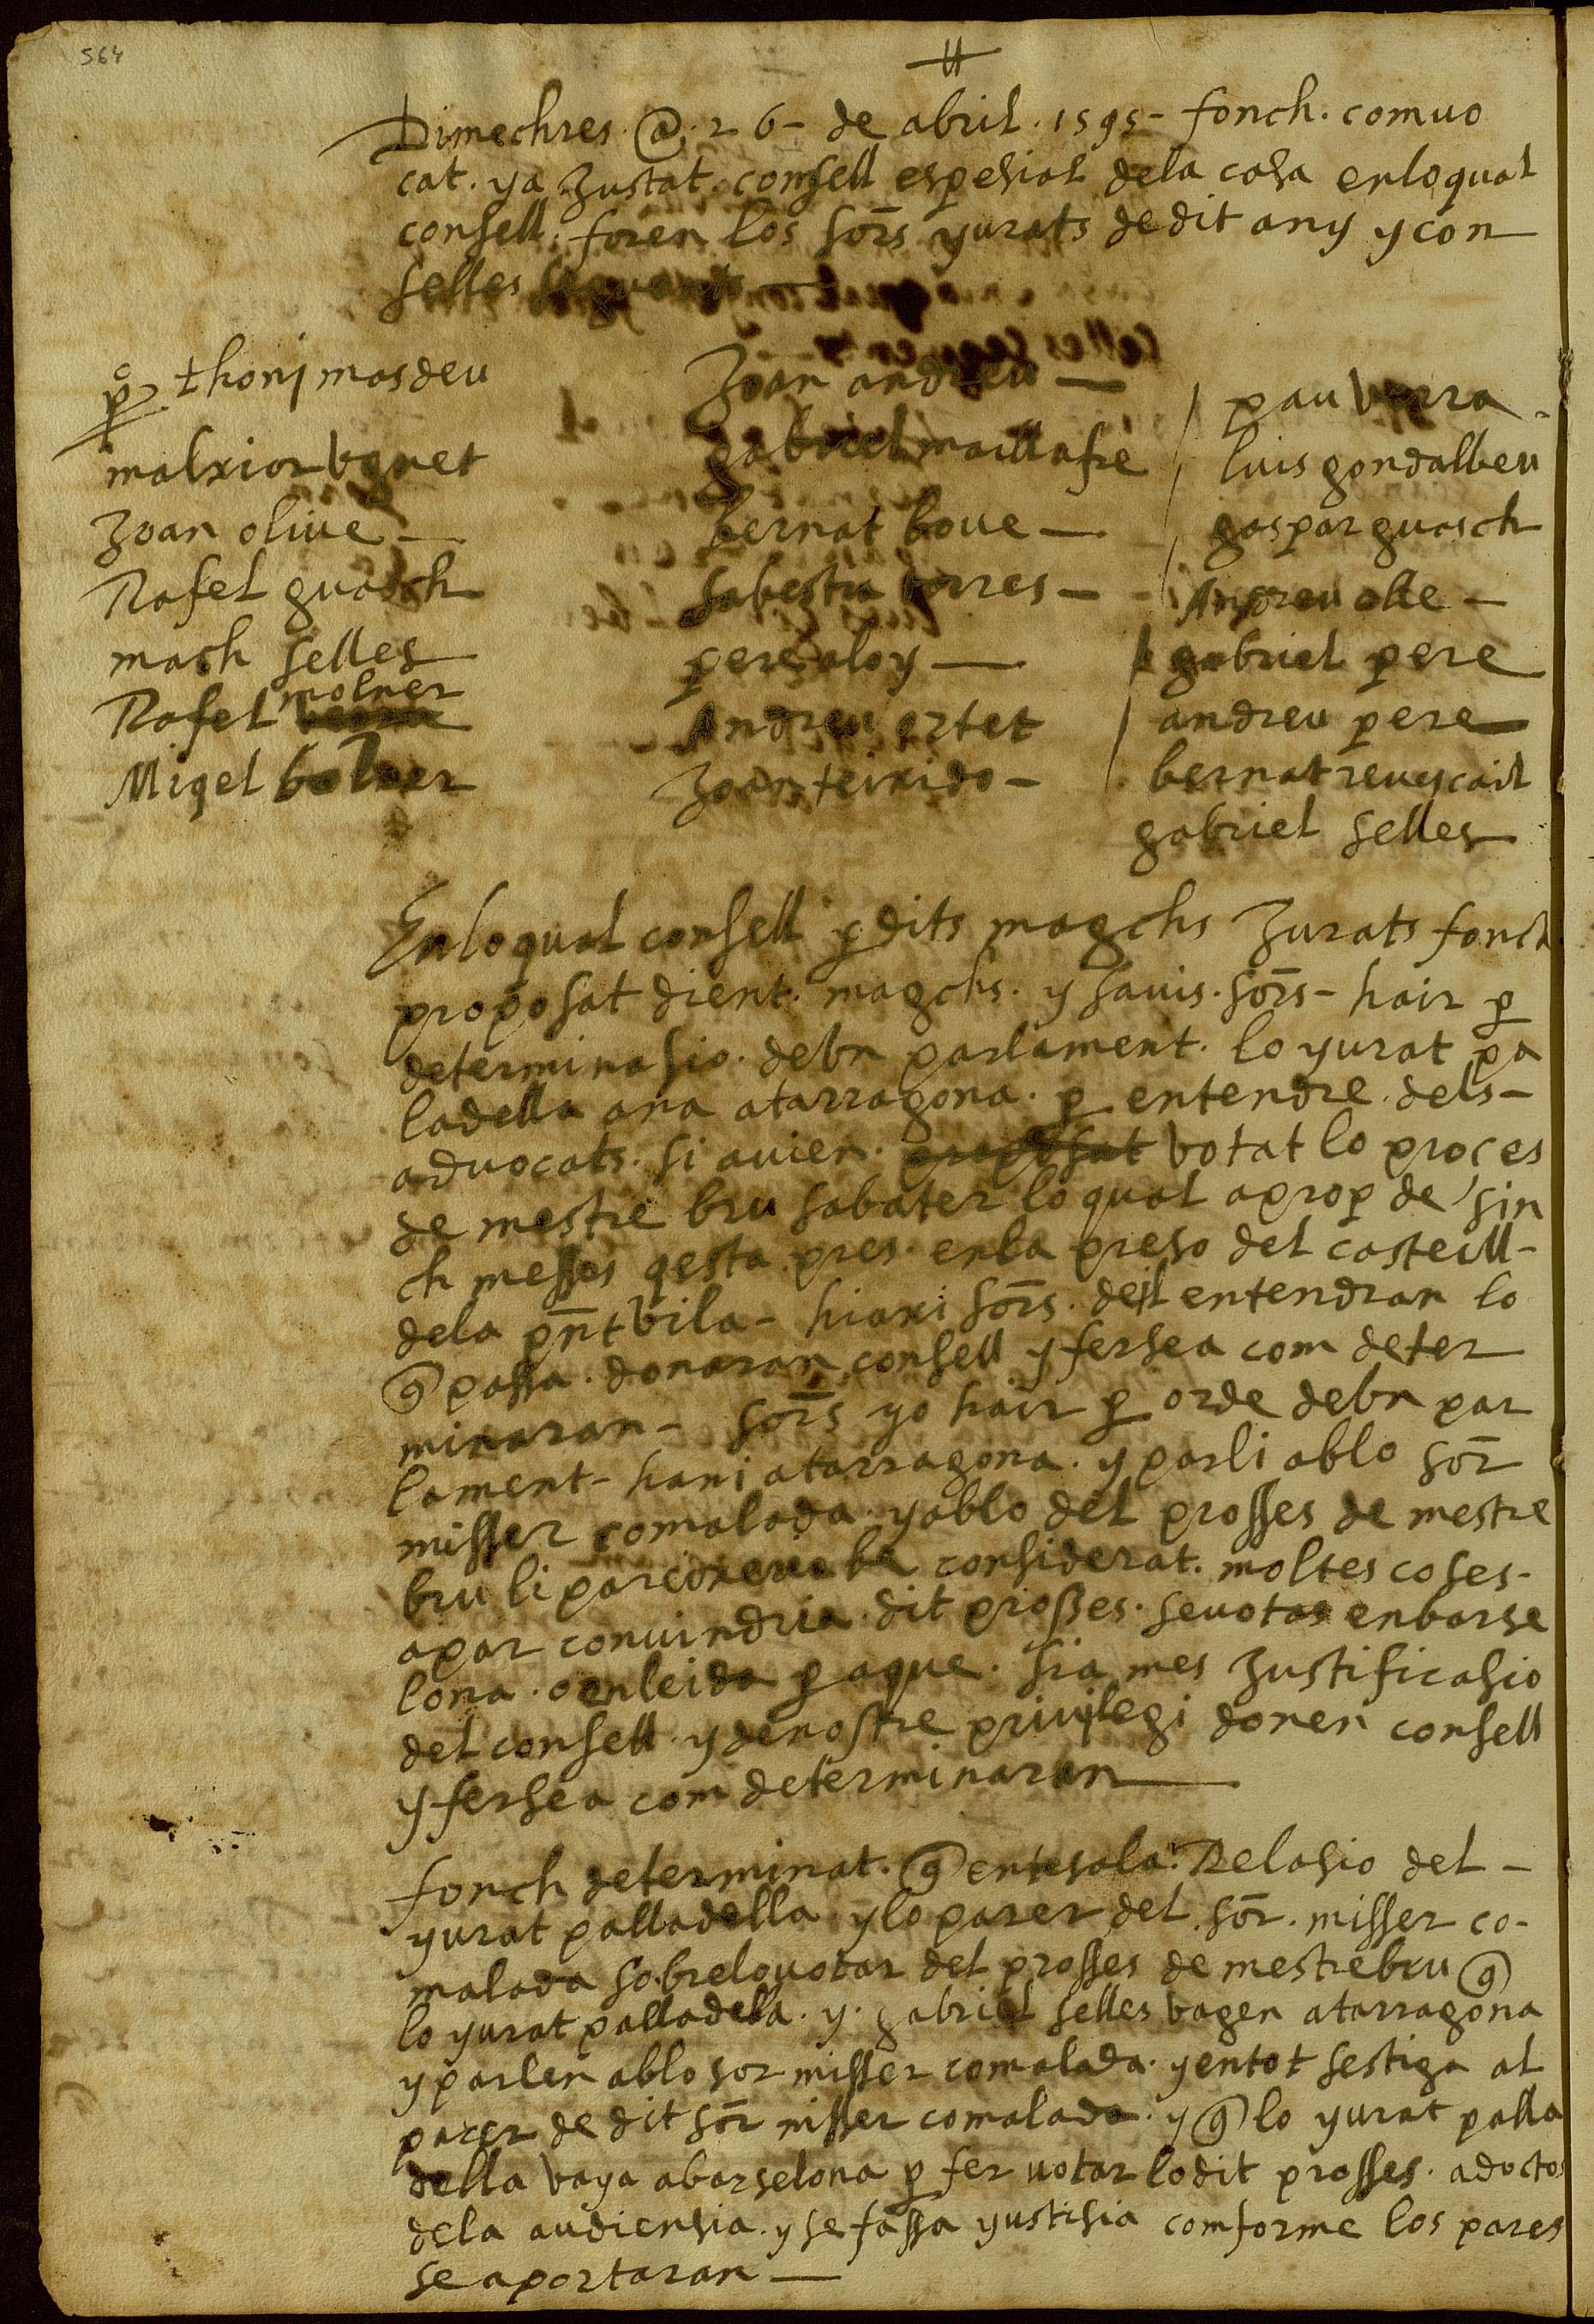 564
Dimechres @ 26 - de abril . 1595 - fonch . comuo
cat . ya Justat . consell espesial dela casa enloqual
consell . foren los sors yurats de dit any y con
selles seguents —
po thoni masdeu
malxior bonet
Joan oliue —
Rafel guasch
mach selles
Rafel molner
Migel
Joan andreu —
gabriel maillafre
bernat boue —
sabestia torres —
pere aloy —
Andreu ortet
Joan teixido —
pau
luis gondalbeu
gaspar guasch
Andreu olle —
gabriel pere
andreu pere
bernat reuyscail
gabriel selles
Enloqual consell p dits magchs Jurats fonch
proposat dient . magchs . y sauis . sors - hair p
determinasio . debn parlament . lo yurat pa
ladella ana atarragona . p entendre . dels -
aduocats . si auien . proposat votat lo proces
de mestre bru sabater loqual aprop de sin
ch messos qesta pres . enla preso del casteill -
dela pnt vila - hiaxi sors . dell entendran lo
q passa . donaran consell y fersea com deter
minaran - sors yo hair p orde debn par
lament - hani atarragona . y parli ablo sor
misser comalada . yablo del prosses de mestre
bru li par be considerat . moltes coses -
apar conuindria . dit prosses . seuotas enbarse
lona . oenleida p aque . sia mes Justificasio
del consell . y denostre priuilegi donen consell
y fersea com determinaran —
fonch determinat . q entesala . Relasio del -
yurat palladella y lo parer del . sor . misser co -
malada sobrelouotar del prosses de mestrebru q
lo yurat palladella . y . gabriel selles vagen atarragona
y parlen ablo sor misser comalada . yentot sestiga al
parer de dit sor misser comalada . y q lo yurat palla
della vaya abarselona p fer uotar lodit prosses . adoctos
dela audiensia . y sefassa yustisia comforme los pares
se aportaran —